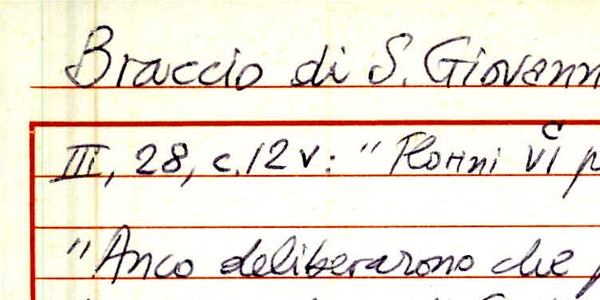 Braccio di S. Giovann
III, 28, c. 12 v: "Florini VI p
"Anco deliberarono che p